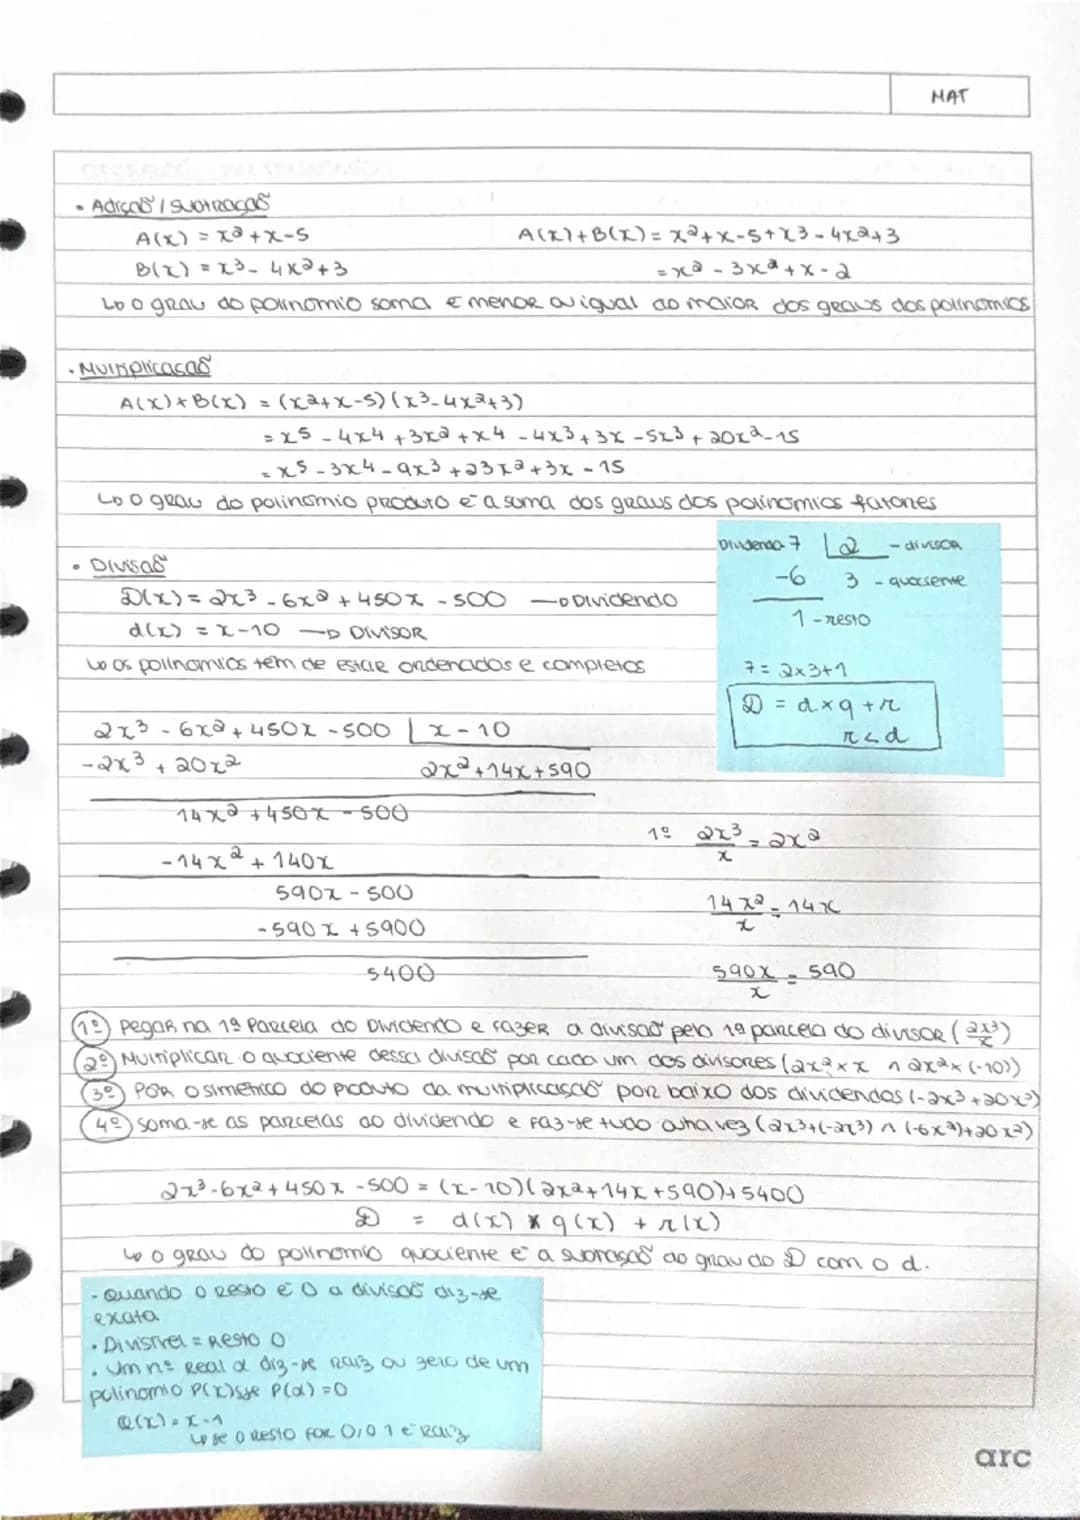 MAT
• Adição / Subtração
A(x) = x²+x-5
A(x)+B(x) = x²+x-5+x3-4x²+3
B(x) = x3-4x²+3
= x² - 3x²+x-2
↳ o grau do polinomio soma é menor ou igual ao maior dos graus dos polinomios
• Multiplicação
A(x)+B(x) = (x²+x-5)(x³-4x²+3)
= x5 - 4x4 +3x² +x4 -4x3+3x -5x3+ 20x²-15
= x5-3x4-9x3+23x²+3x-15
↳ o grau do polinomio produto é a soma dos graus dos polinomios fatores
• Divisão
D(x) = 2x3-6x²+450x-500 → Dividendo
d(x) = x-10 → Divisor
↳ os polinomios têm de estar ordenados e completos
Dividendo 7 2 - divisor
-6 3 - quociente
1 - resto
7 = 2x3+1
D = d×q+r
r<d
2x3-6x²+450x-500 x-10
-2x3+20x² 2x²+14x+590
14x²+450x-500
-14x²+140x
590x-500
-590x+5900
5400
1º 2x³/x = 2x²
14x²/x = 14x
590x/x = 590
1º Pegar na 1ª Parcela do Dividendo e fazer a divisão pela 1ª parcela do divisor (2x³/x)
2º Multiplicar o quociente dessa divisão por cada um dos divisores (2x²×x ∧ 2x²×(-10))
3º Pôr o simétrico do produto da multiplicação por baixo dos dividendos (-2x3+20x²)
4º Soma-se as parcelas ao dividendo e faz-se tudo outra vez (2x3+(-2x3) ∧ (-6x²)+20x²)
2x3-6x2+450x-500 = (x-10)(2x²+14x+590)+5400
D = d(x) × q(x) + r(x)
↳ o grau do polinomio quociente é a subtração do grau do D com o d.
- Quando o resto é 0 a divisão diz-se
exata
• Divisível = Resto 0
• Um nº Real α diz-se raiz ou zero de um
polinomio P(x) sse P(α) = 0
Q(x) = x-1
↳ se o resto for 0, o 1 é raiz
arc